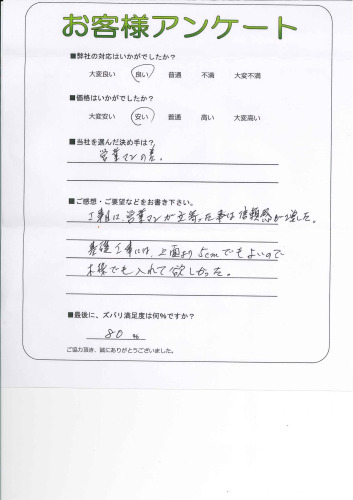 お客様アンケート
■弊社の対応はいかがでしたか？
大変良い 良い 普通 不満 大変不満
■価格はいかがでしたか？
大変安い 安い 普通 高い 大変高い
■当社を選んだ決め手は？
営業マンの差。
■ご感想・ご要望などをお書き下さい。
工事日に、営業マンが立寄った事は信頼感が増した。
基礎工事には、上面より5cmでもよいので
木保でも入れて欲しかった。
■最後に、ズバリ満足度は何％ですか？
80 %
ご協力頂き、誠にありがとうございました。